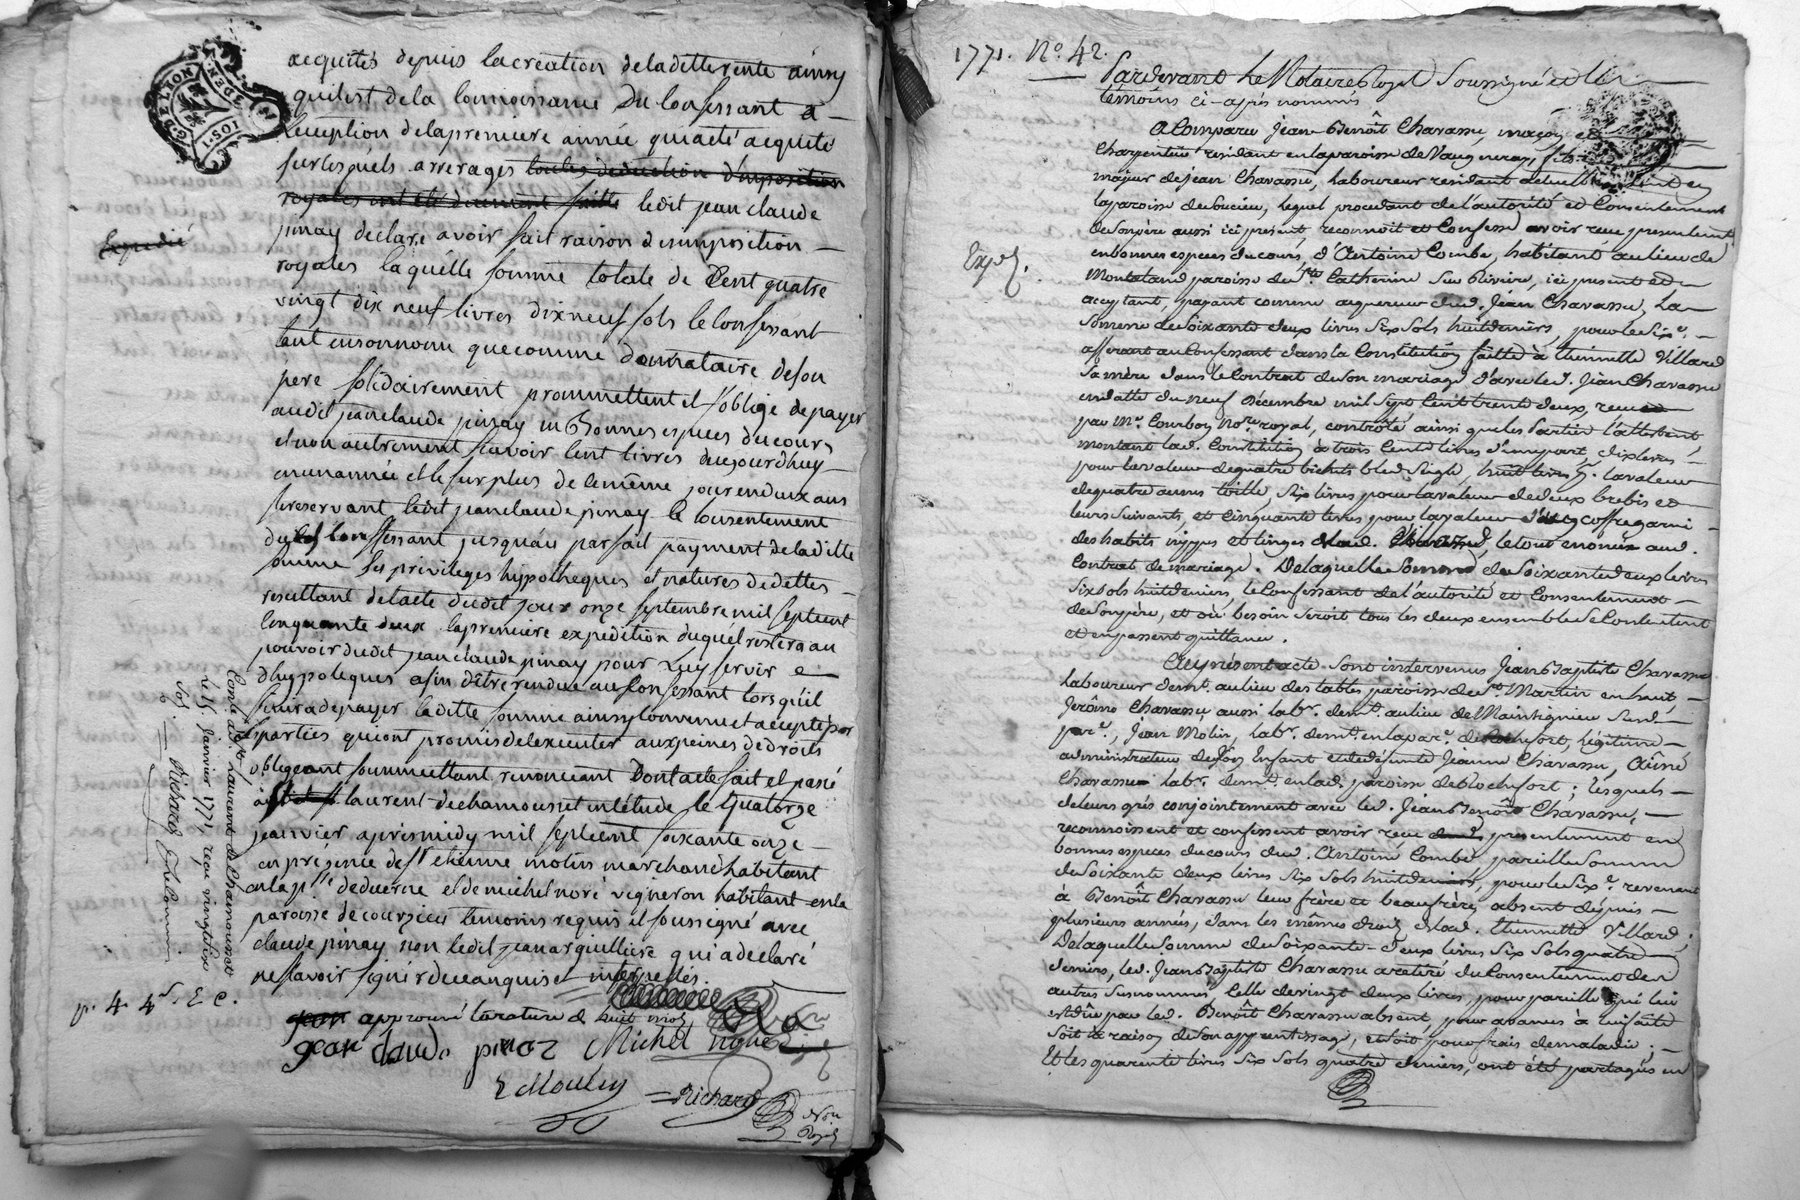 G. DE LYON
DEN.
1 SOL
acquités depuis la creation de la ditte rente ainsy
quil est de la connoissance du Confessant a
lexception de la premiere année qui a été acquité
sur lesquels arrerages toutes deduction d'imposition
royales ont été duement faitte ledit jean claude
pinay declare avoir fait raison d'imposition
royales laquelle somme totale de Cent quatre
vingt dix neuf livres dix neuf sols le Confessant
tant en son nom que comme donnataire de son
pere solidairement promettent et soblige de payer
audit jean claude pinay en bonnes especes du cours
et non autrement scavoir cent livres daujourdhuy
en un année et le surplus de le même jour en deux ans
se reservant ledit jean claude pinay le consentement
du Confessant jusquau parfait payment de la ditte
somme ses privileges hypotheques et natures de dettes
resultant de lacte dudit jour onze septembre mil sept cent
cinquante deux la premiere expedition duquel restera au
pouvoir dudit jean claude pinay pour luy servir
dhyppoteques afin d'être rendue au Confessant lorsquil
finira de payer laditte somme ainsy convenu et accepté par
parties qui ont promis de lexecuter aux peines de droits
obligeant soummettant renonceant Dont acte fait et passé
a St laurent de chamousset en létude le quatorze
jeanvier apres midy mil sept cent soixante onze
en présence de sr etienne molin marchand habitant
en la psse de duerne et de michel noré vigneron habitant en la
paroisse de courzieu temoins requis et soussigné avec
claude pinay non ledit jean arguilliere qui a declaré
ne scavoir signé de ce enquis et interpellés
approuvé la rature de huit mots
jean claude pinaz Michel
E Moulin Richard
Nore
Royal
Expedié
Controllé à St. Laurent de Chamousset
le 15 Janvier 1771, reçu vingt six
sols. Richard
p. 4. 4s. E C.
1771. No. 42.
Pardevant le Notaire Royal Soussigné et les
témoins ci-après nommés
A Comparu Jean Benoît Chavassu, maçon et
Charpentier résidant en la paroisse de Vaugneray, fils
majeur de jean Chavassu, laboureur résidant actuellement en
la paroisse de Soucieu, lequel procedant de l'autorité et Consentement
de son père aussi ici présent, reconnoît et Confesse avoir reçu présentement
en bonnes especes du cours, d'Antoine Combe, habitant au lieu de
Montaland paroisse de Ste. Catherine sur Riviere, ici présent et
acceptant, payant comme acquereur dud. Jean Chavassu, La
Somme de Soixante deux livres Six Sols huit deniers, pour le Sixe.
afferant au Confessant dans la Constitution faitte à thiennette Villard
Sa mère dans le Contrat de son mariage d'avec led. Jean Chavassu
en datte du neuf Décembre mil Sept Cent trente deux, reçu
par Me. Courbon nore. royal, contrôlé ainsi que les Parties l'attestent
montant lad. Constitution à trois Cents livres d'une part, dix livres
pour la valeur de quatre bichets bled Seigle, huit livres pr. la valeur
de quatre aunes toille, Six livres pour la valeur de deux brebis et
leurs suivants, et Cinquante livres pour la valeur d'un coffre garni
des habits nippes et linges de lad. Villard, le tout enoncé aud.
Contrat de mariage. De laquelle Somme de Soixante deux livres
Six Sols huit deniers, le Confessant de l'autorité et Consentement
de son père, et où besoin seroit tous les deux ensemble se Contentent
et en passent quittance.
Au présent acte Sont intervenus Jean Baptiste Chavassu
laboureur demt. au lieu des tables paroisse de St. Martin en haut
Jerôme Chavassu aussi labr. demt. au lieu de Maintignieu Susd.
pare., Jean Molin, labr. demt. en la pare. de Rochefort, légitime
administrateur de son Enfant et de défunte Jeanne Chavassu, Aimé
Chavassu labr. demt. en lad. paroisse de Rochefort; lesquels
de leurs grés conjointement avec led. Jean Benoît Chavassu,
reconnoissent et confessent avoir reçu présentement en
bonnes especes du cours dud. Antoine Combe pareille Somme
de Soixante deux livres Six Sols huit deniers, pour le Sixe. revenant
à Benoît Chavassu leur frère et beaufrère, absent depuis
plusieurs années, dans les mêmes droits de lad. thiennette Villard;
De laquelle Somme de Soixante-deux livres Six Sols quatre
deniers, led. Jean Baptiste Chavassu a retiré du Consentement des
autres Susnommés Celle de vingt deux livres, pour pareille qui lui
est dûe par led. Benoît Chavassu absent, pour avances à lui faite
Soit à raison de Son apprentissage, et Soit pour frais de maladie;
Et les quarante livres Six Sols quatre deniers, ont été partagés en
Exp.